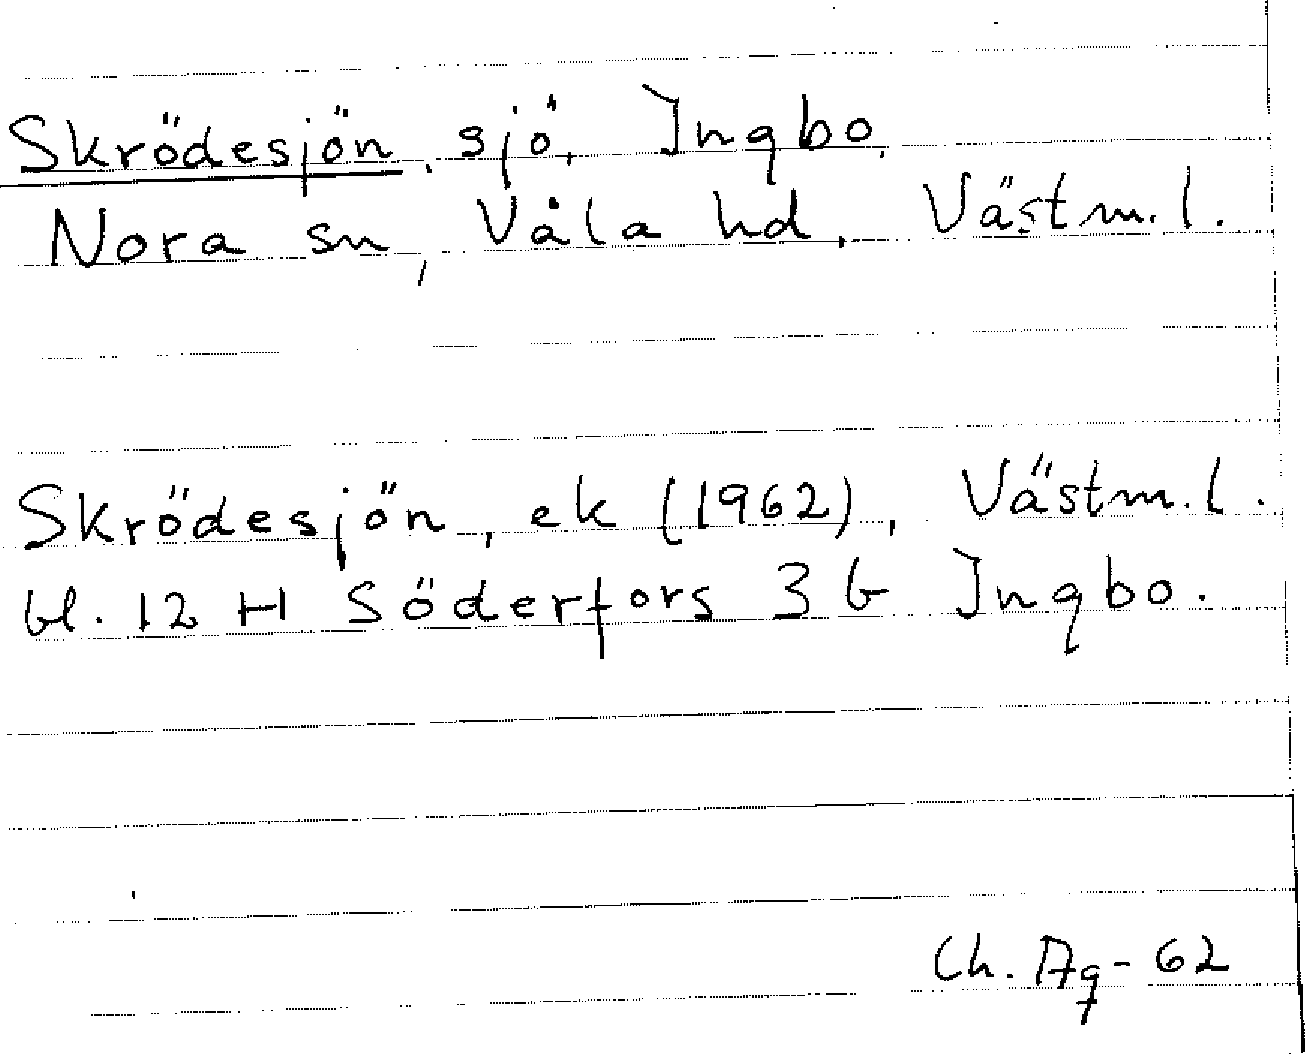 Skrödesjön, sjö, Ingbo,
Nora sn, Våla hd, Västm. l.
Skrödesjön, ek (1962), Västm. l.
bl. 12 H Söderfors 3 b Ingbo.
Ch. Ag-62